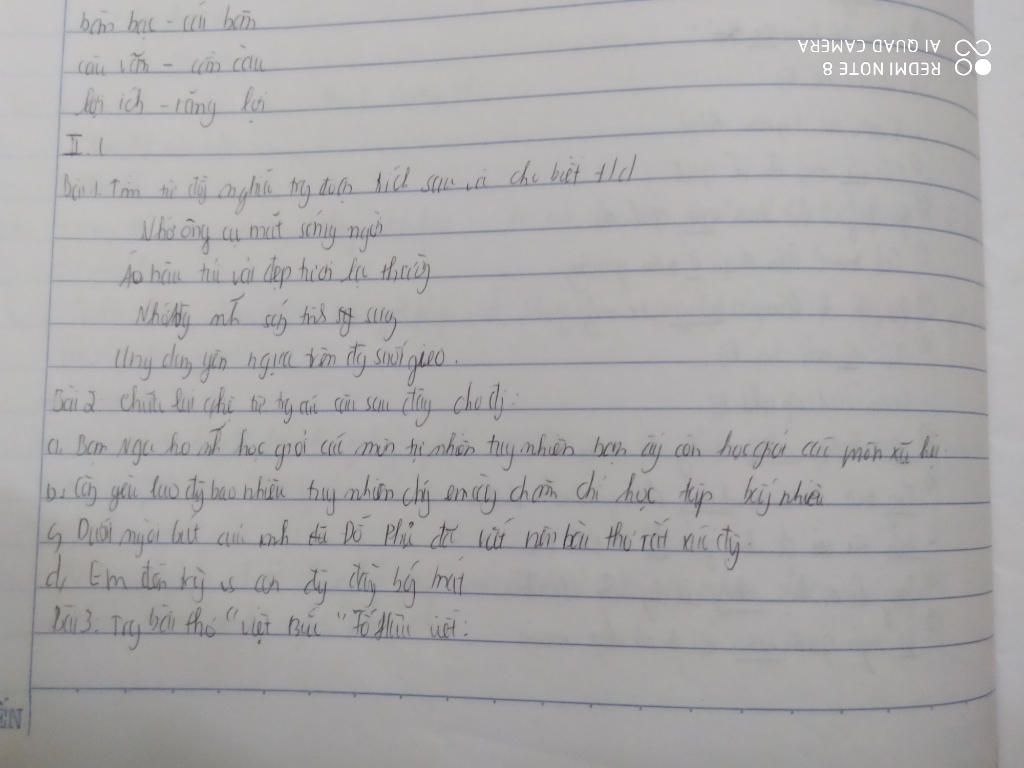 bàn bạc - cái bàn
câu văn - cần câu
lợi ích - răng lợi
II.1
Bài 1. Tìm từ đg nghĩa tg đoạn trích sau và cho biết t/d
Nhớ ông cụ mắt sáng ngời
Áo nâu túi vải đẹp tươi lạ thường
Nhớ sáng
Ung dung yên ngựa trên đg suối reo.
Bài 2 chữa lại qhệ từ tg các câu sau đây cho đ:
a. Bạn Nga ho học giỏi các môn tự nhiên tuy nhiên bạn ấy còn học giỏi các môn xã hội
b, Càng yêu lao độ bao nhiêu tuy nhiên chúng em càng chăm chỉ học tập bấy nhiêu
c, Dưới ngòi bút của mình Đỗ Phủ để viết nên bài thơ rất xúc độ.
d, Em đến trg vs con đg đầy bóng mát
Bài 3. Trg bài thơ "Việt Bắc" Tố Hữu viết:
REDMI NOTE 8
AI QUAD CAMERA
ẾN